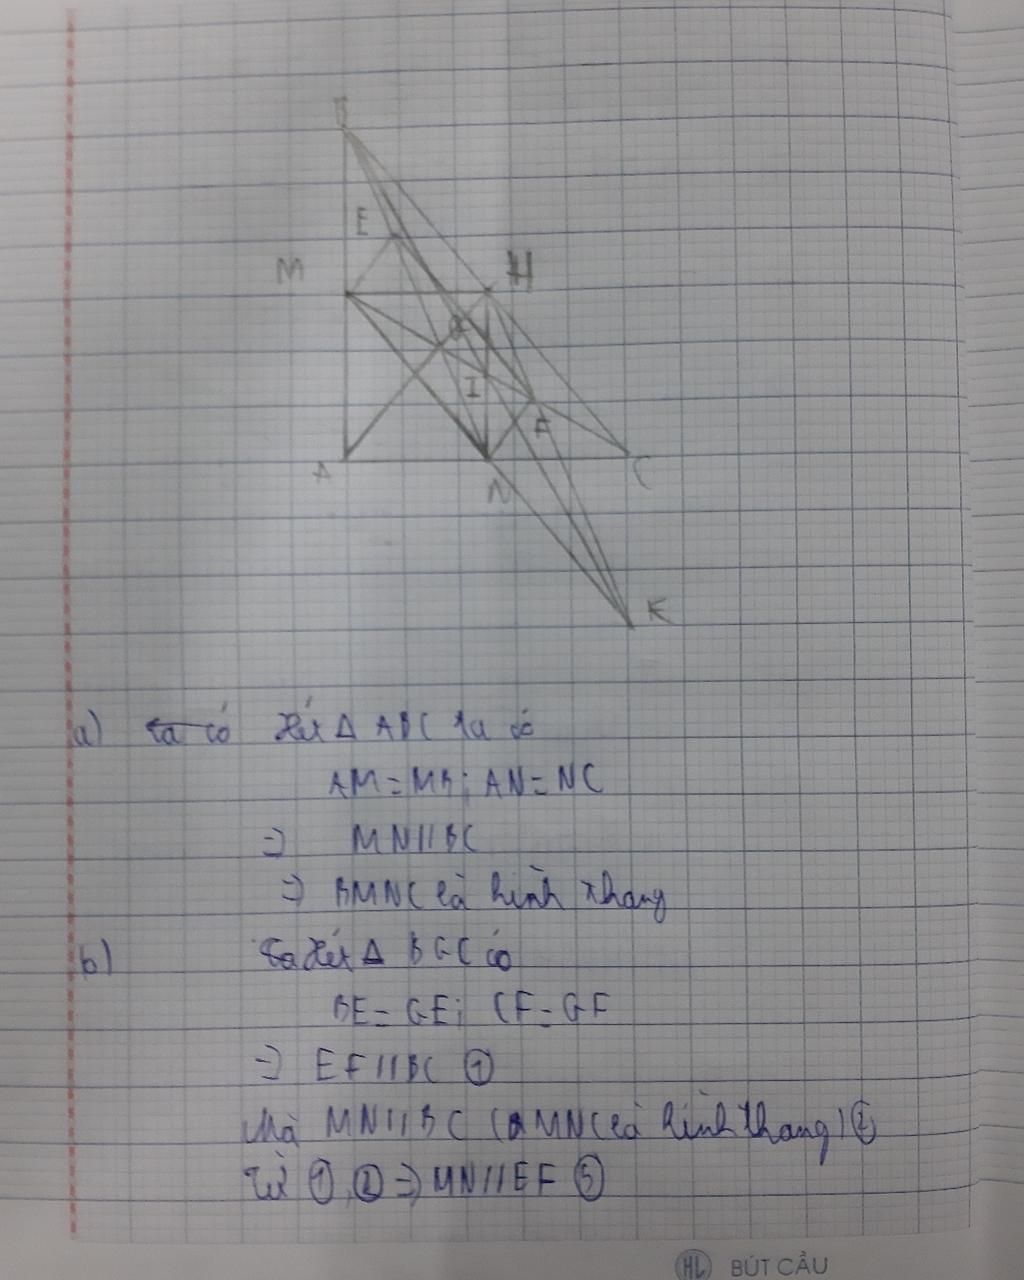 B
E
M
H
G
I
F
A
N
C
K
a) ta có xét Δ ABC ta có
AM = MB; AN = NC
=> MN // BC
=> BMNC là hình thang
b) Ta xét Δ BGC có
BE = GE; CF = GF
=> EF // BC ①
Mà MN // BC (BMNC là hình thang) ②
Từ ①, ② => MN // EF ③
HL BÚT CẦU